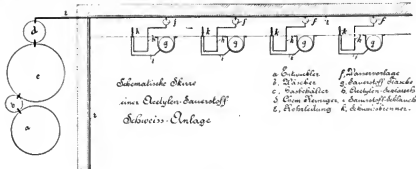 Schematische Skizze
einer Acetylen-Sauerstoff
Schweiss-Anlage
a Entwickler
b, Wäscher
c, Gasbehälter
d Chem. Reiniger
e, Rohrleitung
f Wasservorlage
g. Sauerstoff-Flasche
h, Acetylen-Schlauch
i Sauerstoff-Schlauch
k, Schweissbrenner.